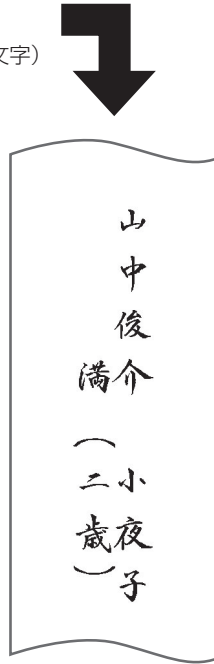 文字）
山中俊介　小夜子
満（二歳）